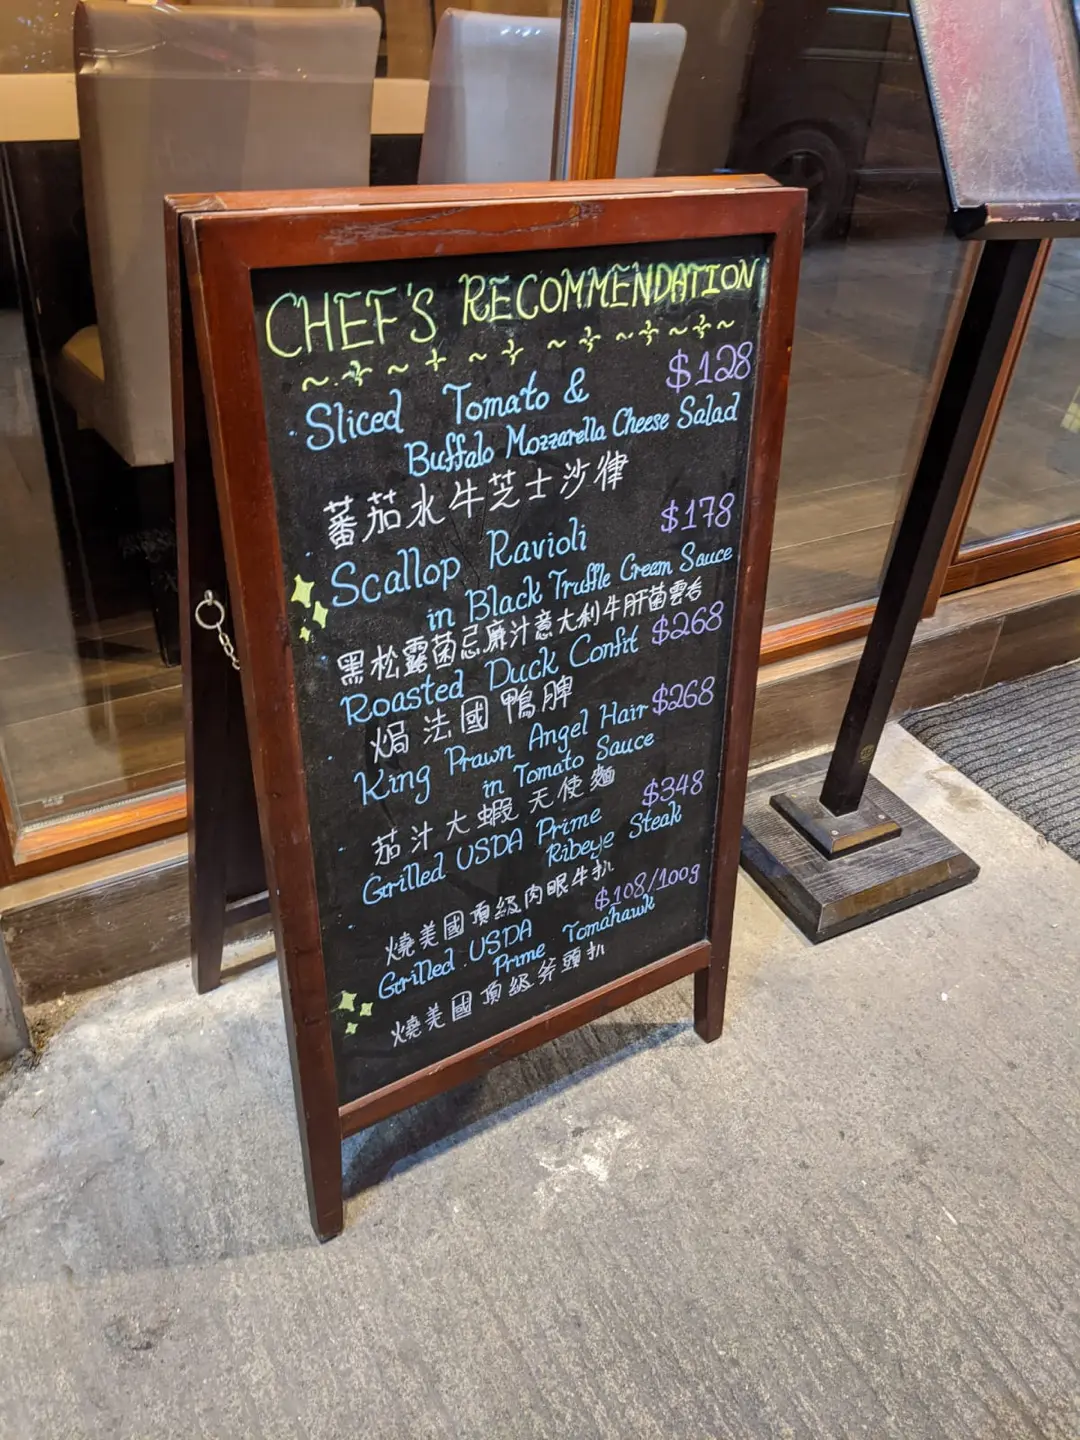 CHEF'S RECOMMENDATION
$128
Sliced Tomato &
Buffalo Mozzarella Cheese Salad
蕃茄水牛芝士沙律
$178
Scallop Ravioli
in Black Truffle Cream Sauce
黑松露菌忌廉汁意大利牛肝菌雲吞
Roasted Duck Confit $268
焗法國鴨脾
King Prawn Angel Hair $268
in Tomato Sauce
茄汁大蝦天使麵
$348
Grilled USDA Prime
Ribeye Steak
燒美國頂級肉眼牛扒
$108/100g
Grilled USDA
Prime Tomahawk
燒美國頂級斧頭扒